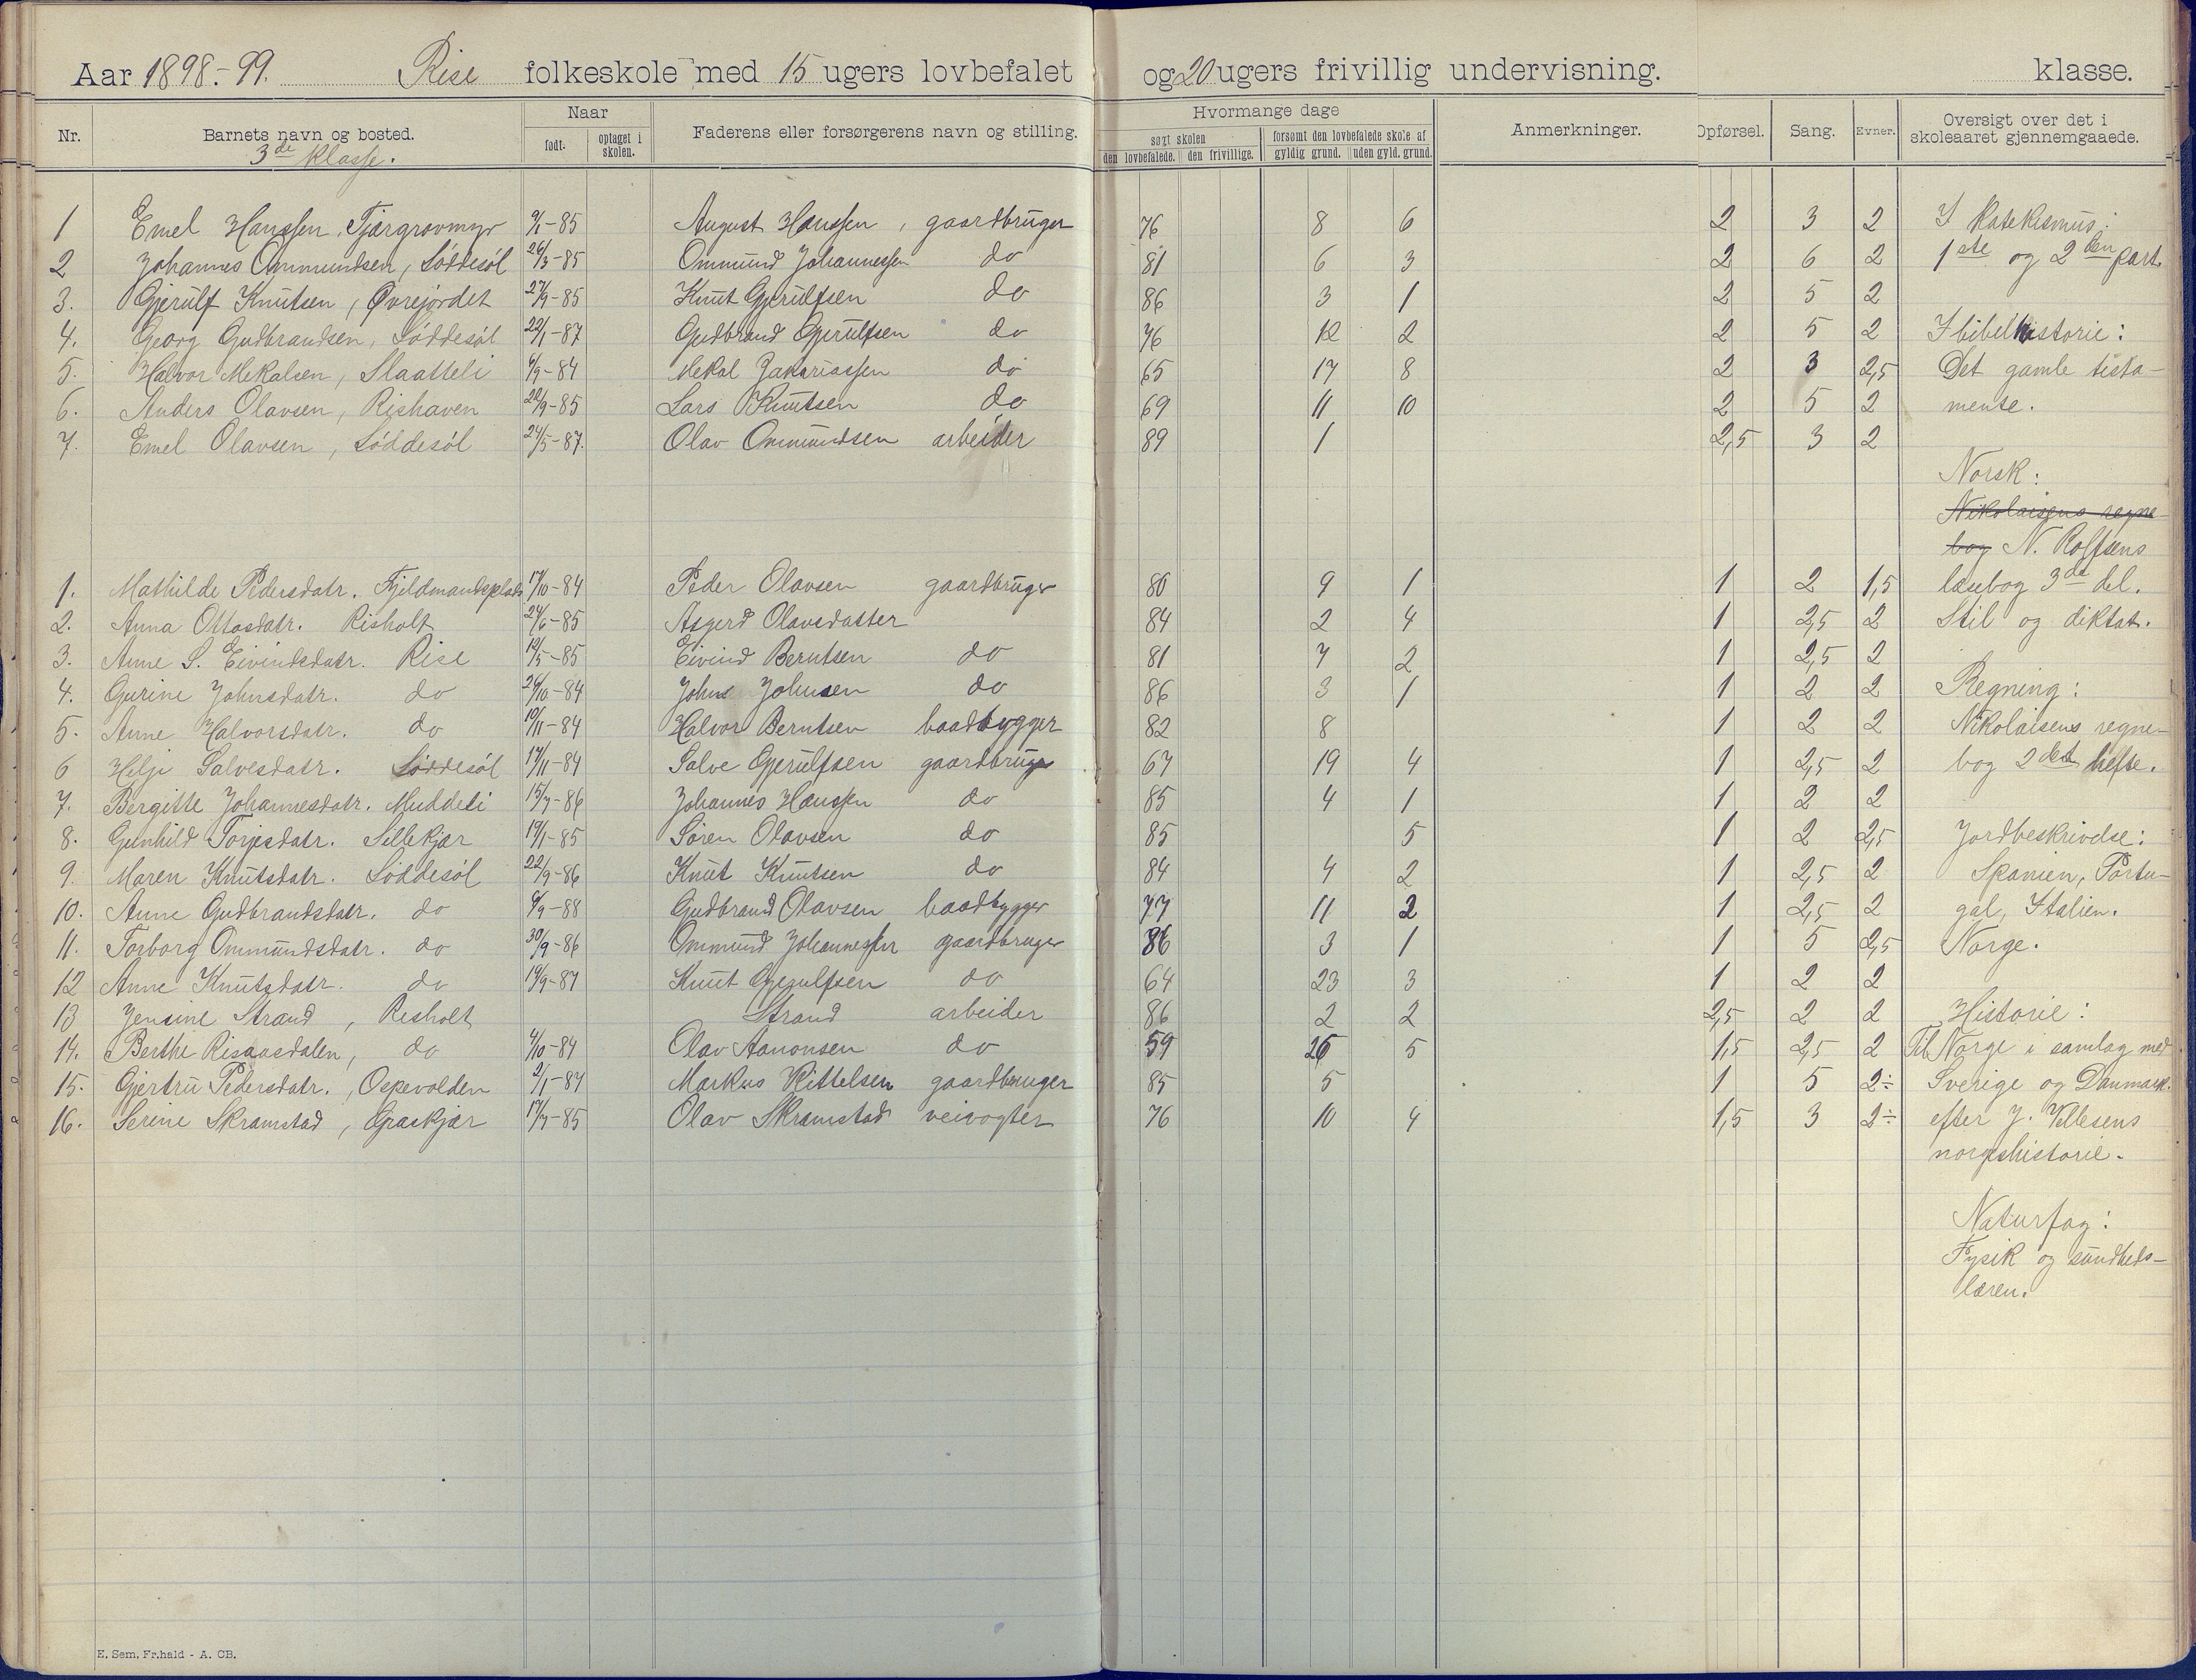 Aar 1898.-99. Rise folkeskole med 15 ugers lovbefalet og 20 ugers frivillig undervisning. klasse.
Nr. Barnets navn og bosted. Naar født. optaget i skolen. Faderens eller forsørgerens navn og stilling. Hvormange dage søgt skolen den lovbefalede. den frivillige. forsømt den lovbefalede skole af gyldig grund. uden gyld. grund. Anmerkninger. Opførsel. Sang. Evner. Oversigt over det i skoleaaret gjennemgaaede.
3de klasse.
1 Emel Hanssen, Tjærgravmyr 9/1-85 August Hanssen, gaardbruger 76 8 6 2 3 2 I Katekismus:
2 Johannes Ommundsen, Løddesøl 26/3-85 Ommund Johannessen do 81 6 3 2 6 2 1ste og 2den part.
3. Gjerulf Knutsen, Øvrejordet 27/9-85 Knut Gjerulfsen do 86 3 1 2 5 2
4. Georg Gudbrandsen, Løddesøl 22/1-87 Gudbrand Gjerulfsen do 76 12 2 2 5 2 I bibelhistorie:
5. Halvor Mekalsen, Slaatteli 6/9-84 Mekal Zakariassen do 65 17 8 2 3 2,5 Det gamle testa-
6. Anders Olavsen, Rishaven 22/9-85 Lars Knutsen do 69 11 10 2 5 2 mente.
7. Emel Olavsen, Løddesøl 24/5-87. Olav Ommundsen arbeider 89 1 2,5 3 2
Norsk:
Nikolaisens regne-
bog N. Rolfsens
1. Mathilde Pedersdatr. Fjeldmandsplads 17/10-84 Peder Olavsen gaardbruger 80 9 1 1 2 1,5 læsebog 3de del.
2. Anna Ottosdatr. Risholt 24/6-85 Asgerd Olavsdatter 84 2 4 1 2,5 2 Stil og diktat.
3. Anne S. Eivindsdatr. Rise 19/5-85 Eivind Berntsen do 81 7 2 1 2,5 2
4. Gurine Johnsdatr. do 24/10-84 John Johnsen do 86 3 1 1 2 2 Regning:
5. Anne Halvorsdatr. do 10/11-84 Halvor Berntsen baadbygger 82 8 1 2 2 Nikolaisens regne-
6 Helje Salvesdatr. Løddesøl 17/11-84 Salve Gjerulfsen gaardbruger 67 19 4 1 2,5 2 bog 2det hefte.
7. Bergitte Johannesdatr. Muddeli 15/7-86 Johannes Hanssen do 85 4 1 1 2 2
8. Gunhild Torjesdatr. Sillekjær 19/1-85 Søren Olavsen do 85 5 1 2 2,5 Jordbeskrivelse:
9. Maren Knutsdatr. Løddesøl 22/9-86 Knut Knutsen do 84 4 2 1 2,5 2 Spanien, Portu-
10. Anne Gudbrandsdatr. do 6/9-88 Gudbrand Olavsen baadbygger 77 11 2 1 2,5 2 gal, Italien.
11. Torborg Ommundsdatr. do 30/9-86 Ommund Johannessen gaardbruger 86 3 1 1 5 2,5 Norge.
12 Anne Knutsdatr. do 19/9-87 Knut Gjerulfsen do 64 23 3 1 2 2
13 Jensine Strand, Risholt Strand arbeider 86 2 2 2,5 2 2 Historie:
14. Berthe Risaasdalen, do 4/10-84 Olav Aanonsen do 59 26 5 1,5 2,5 2 Til Norge i samlag med
15. Gjertru Pedersdatr., Ospevolden 2/1-84 Markus Kittelsen gaardbruger 85 5 1 5 2÷ Sverige og Danmark.
16. Serine Skramstad, Graskjær 17/7-85 Olav Skramstad veivogter 76 10 4 1,5 3 2÷ efter J. Vellesens
norgeshistorie.
Naturfag:
Fysik og sundheds-
læren.
E. Sem, Fr.hald - A. CB.